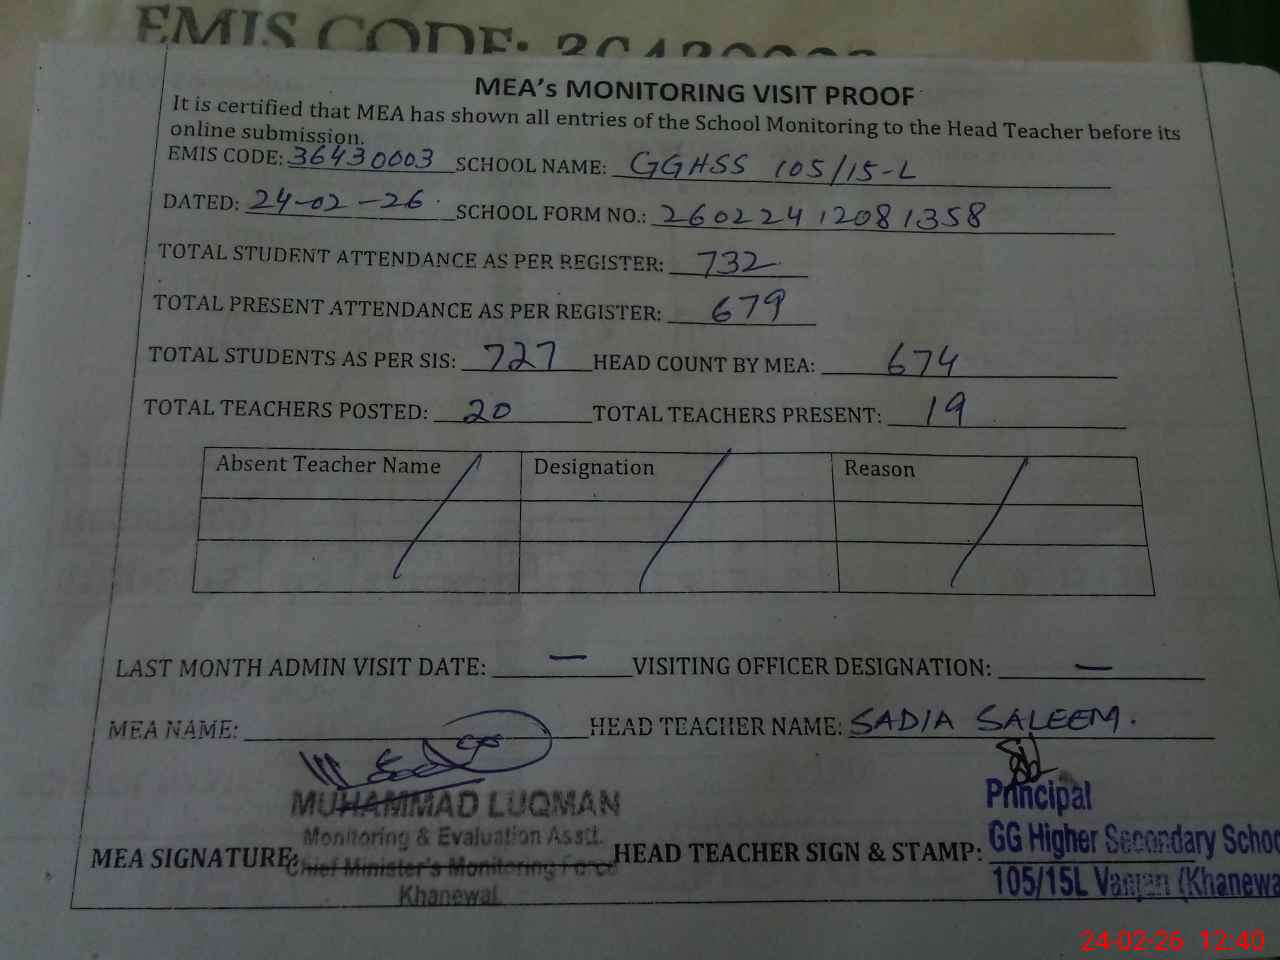 EMIS CODE: 36430003
MEA's MONITORING VISIT PROOF
It is certified that MEA has shown all entries of the School Monitoring to the Head Teacher before its
online submission.
EMIS CODE: 36430003 SCHOOL NAME: GGHSS 105/15-L
DATED: 24-02-26 SCHOOL FORM NO.: 26022412081358
TOTAL STUDENT ATTENDANCE AS PER REGISTER: 732
TOTAL PRESENT ATTENDANCE AS PER REGISTER: 679
TOTAL STUDENTS AS PER SIS: 727 HEAD COUNT BY MEA: 674
TOTAL TEACHERS POSTED: 20 TOTAL TEACHERS PRESENT: 19
Absent Teacher Name Designation Reason
LAST MONTH ADMIN VISIT DATE: — VISITING OFFICER DESIGNATION: —
MEA NAME: HEAD TEACHER NAME: SADIA SALEEM.
MUHAMMAD LUQMAN
Monitoring & Evaluation Asstt.
Chief Minister's Monitoring Force
Khanewal
MEA SIGNATURE: HEAD TEACHER SIGN & STAMP:
Principal
GG Higher Secondary Schoo
105/15L (Khanewa
24-02-26 12:40